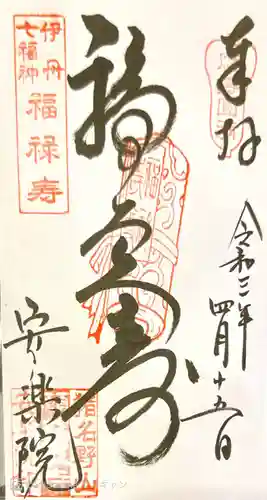 奉拝
令和三年四月十五日
福禄寿
伊丹
七福神
福禄寿
安楽院
指名野山